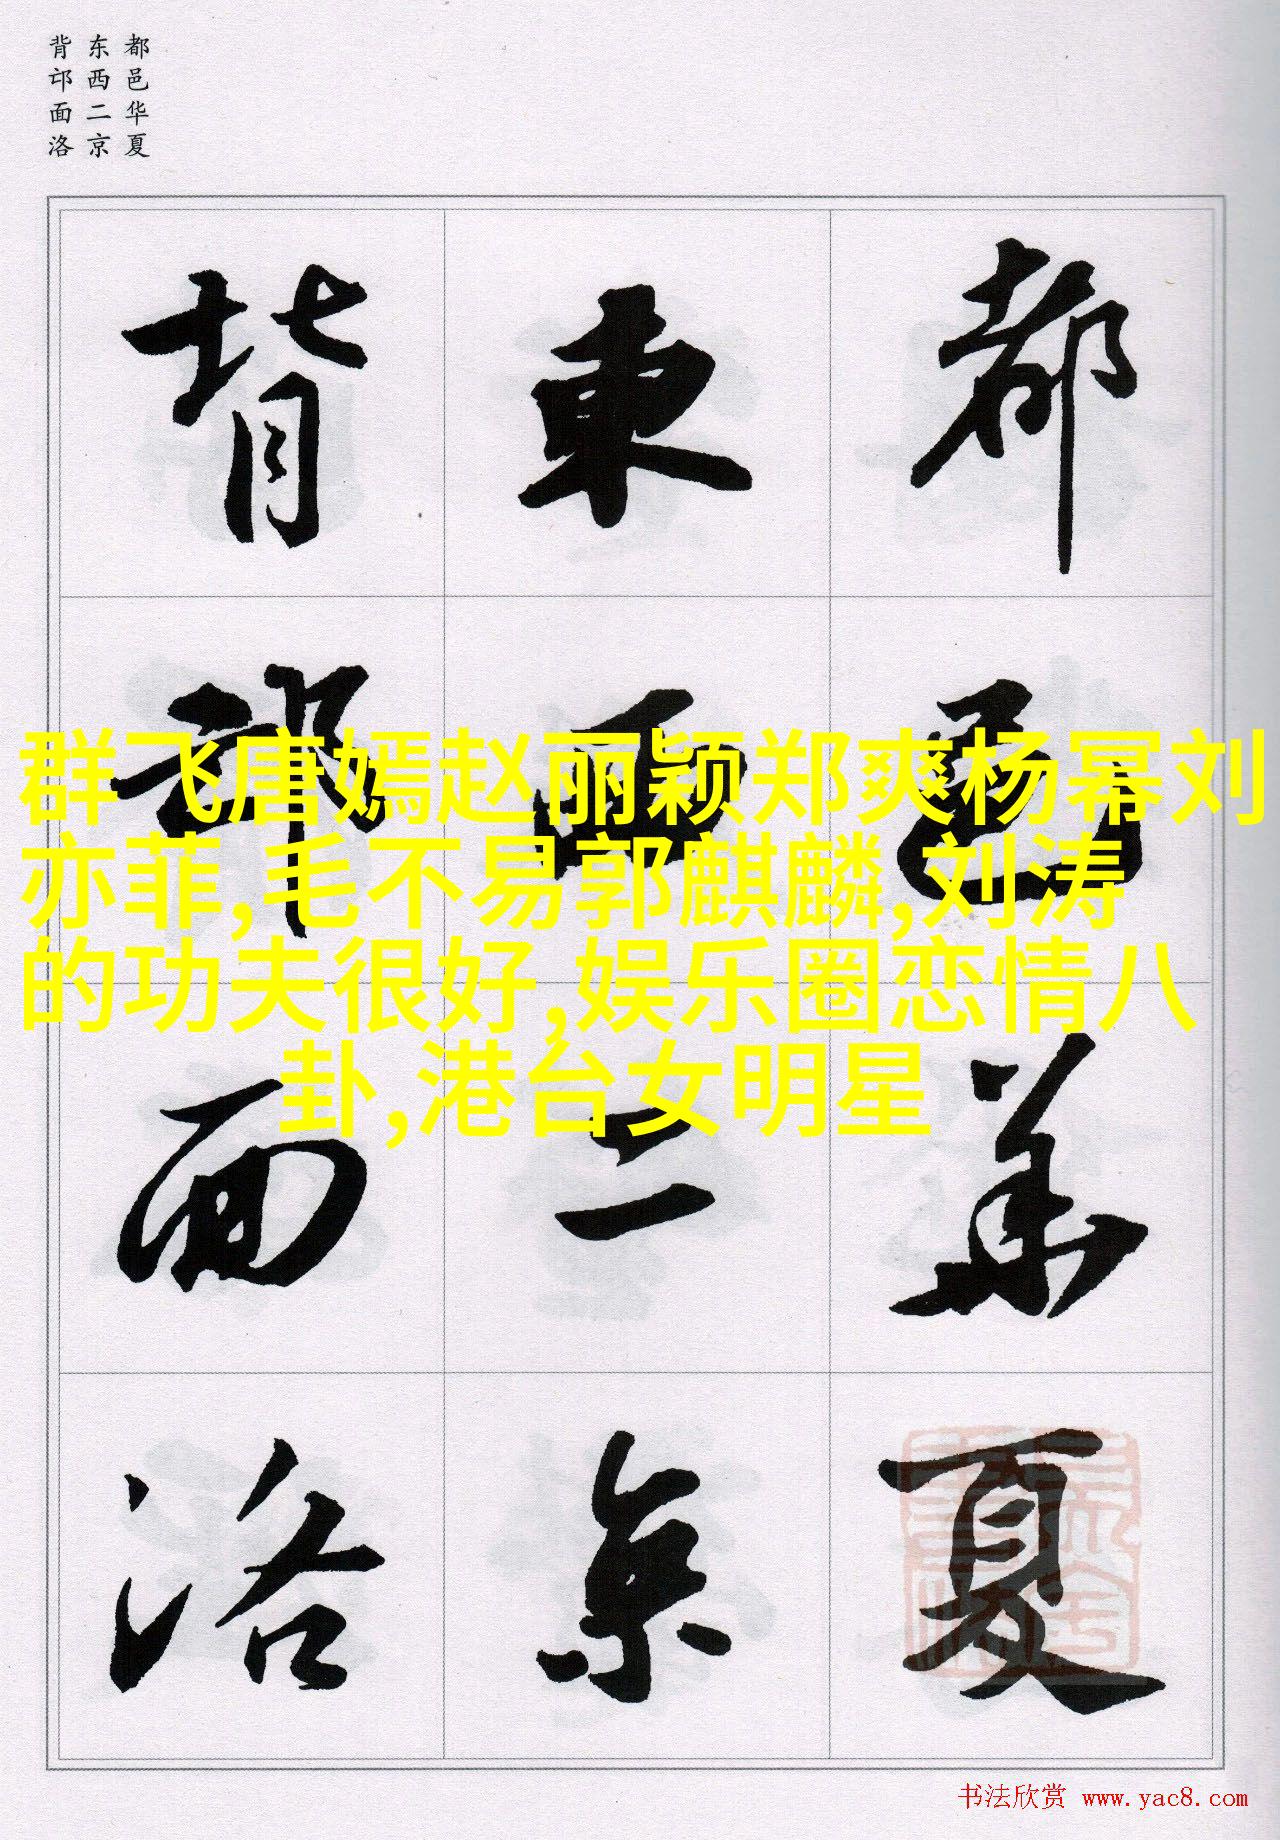 都邑华夏
东西二京
背邙面洛
都邑華夏
東西二京
背邙面洛
群飞唐嫣赵丽颖郑爽杨幂刘
亦菲,毛不易郭麒麟,刘涛
的功夫很好,娱乐圈恋情八
卦,港台女明星
书法欣赏 www.yac8.com